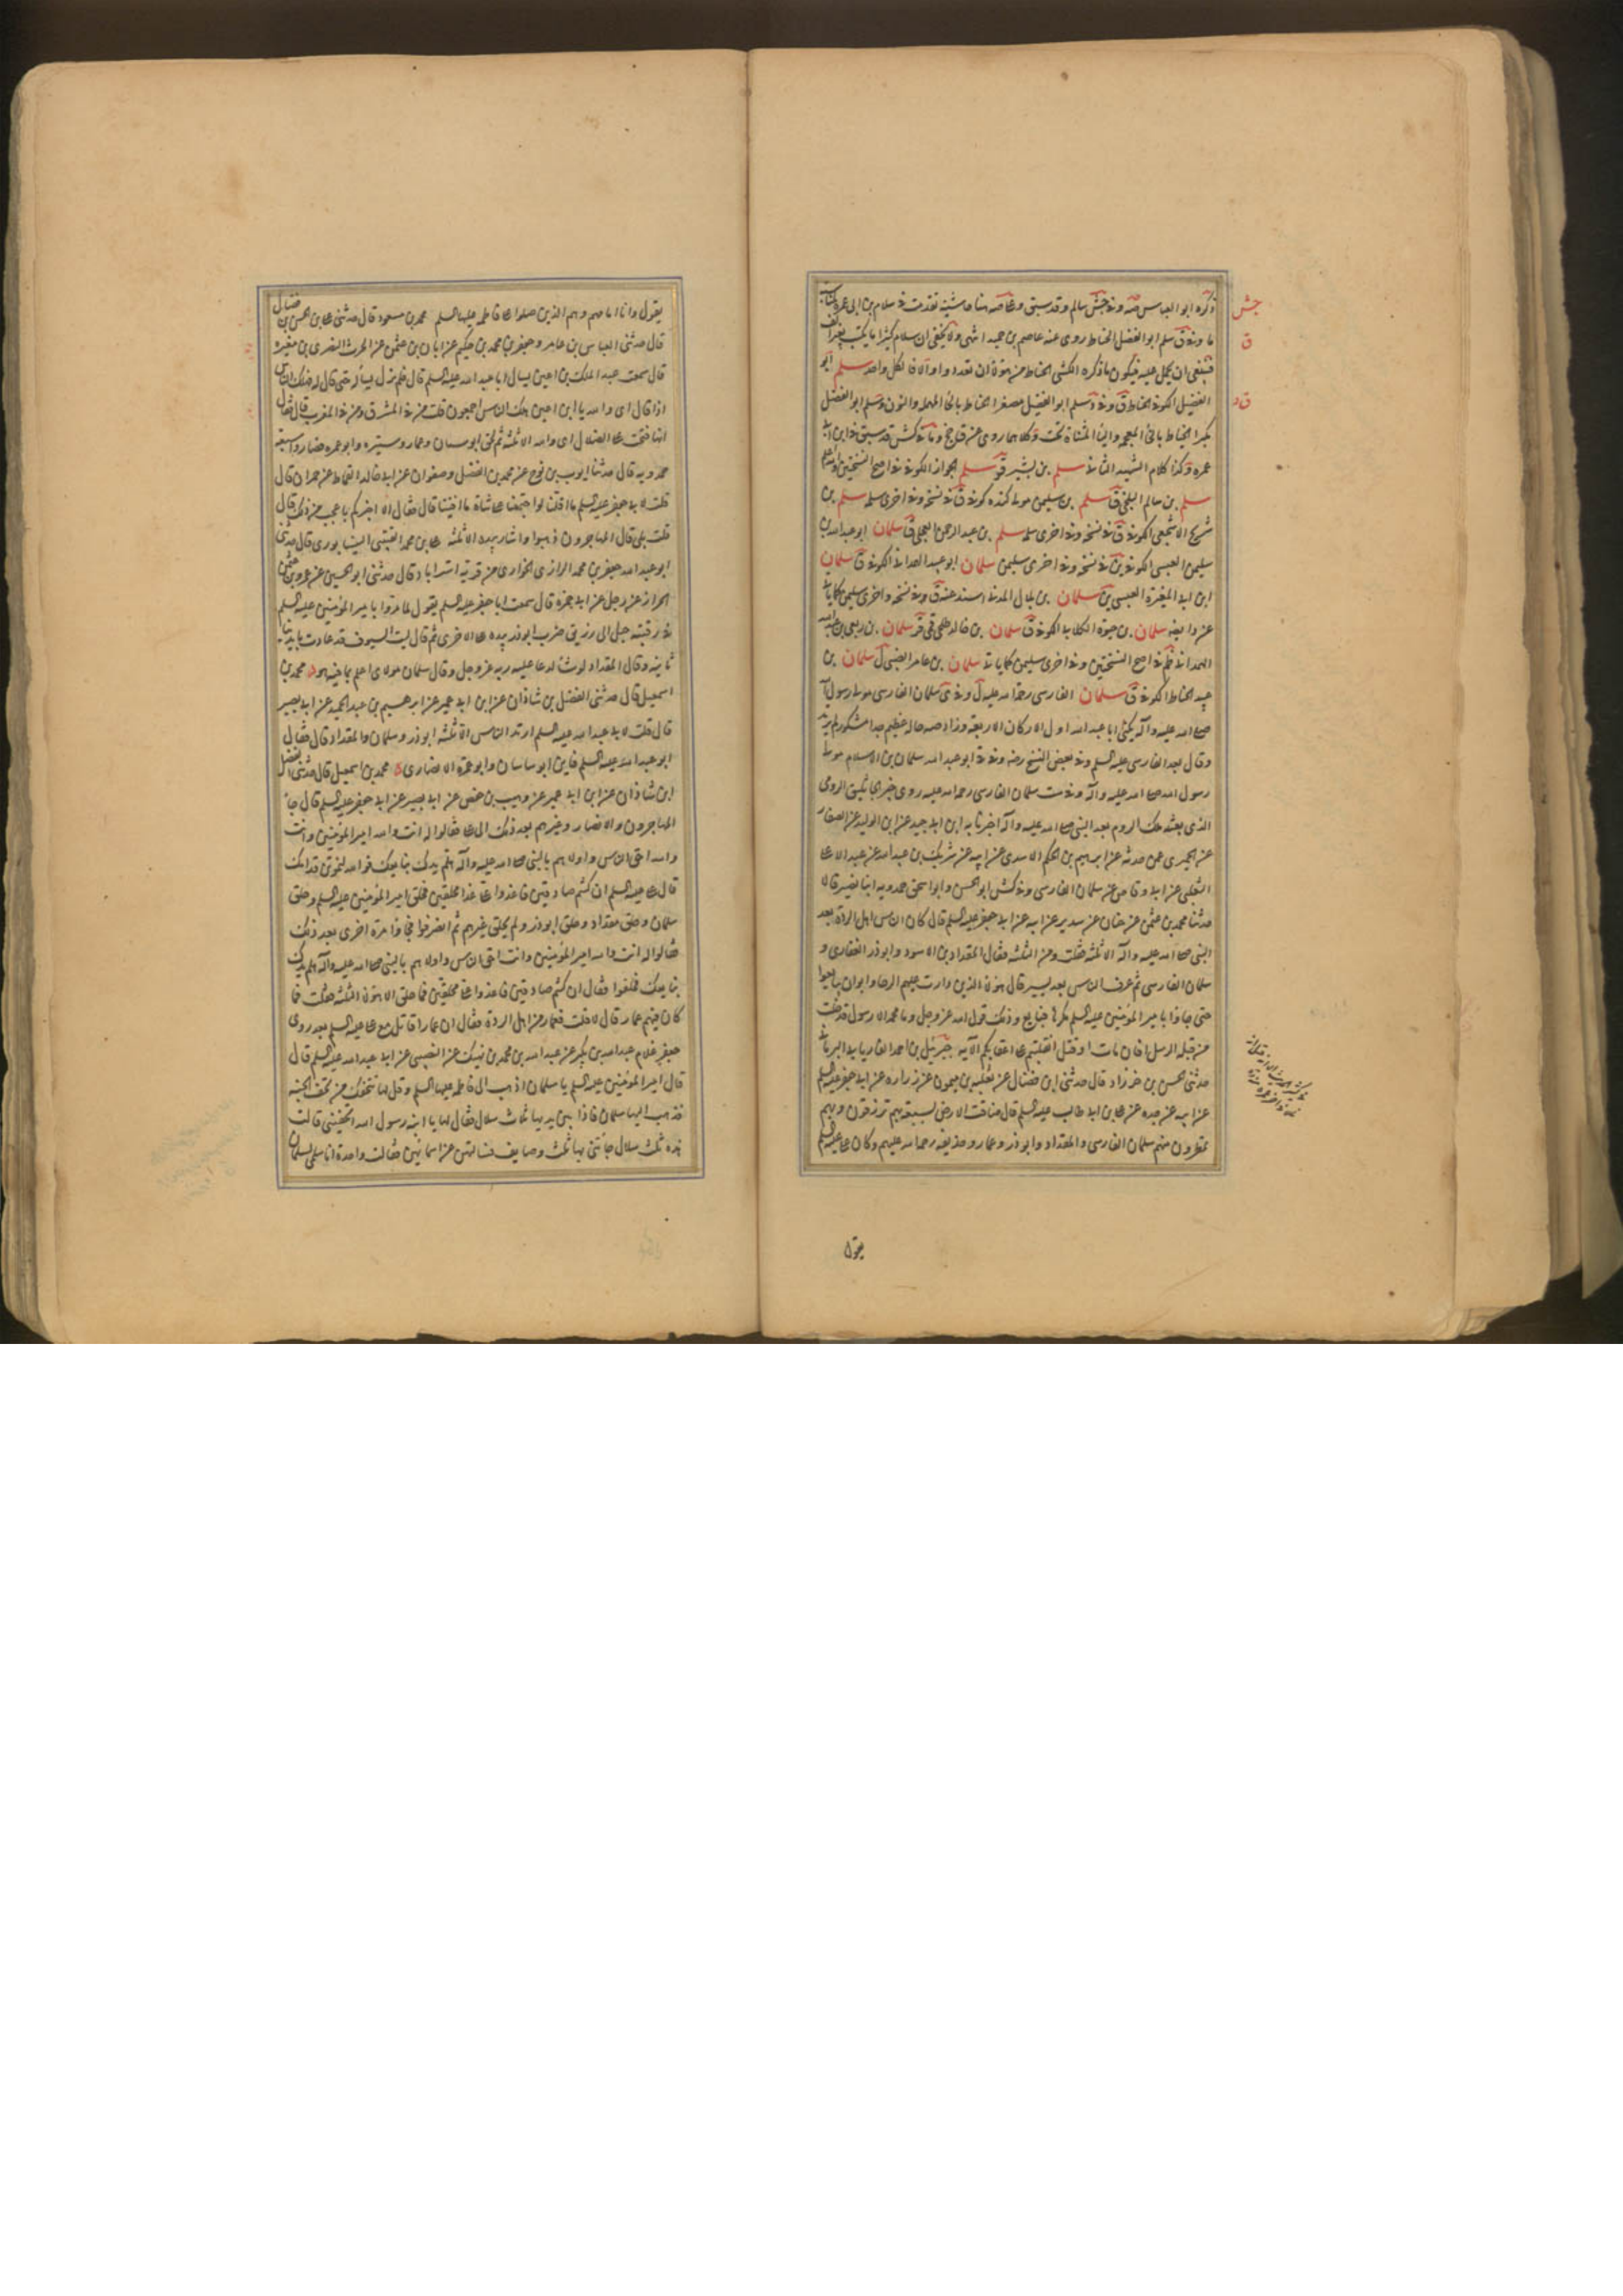 ذكره ابو العباس صه وفى جش سالم وقد سبق وعلى صه هنا حاشية تقدمت فى سلام بن ابى عمرة
ما وفى ق سلم ابو الفضل الخياط روى عنه عاصم بن حميد انتهى ولا يخفى ان سلام كثيرا ما يكتب بغير الف
فينبغى ان يحمل عليه فيكون ما ذكره الكشى الخياط من هؤلاء ان تعددوا والا فالكل واحد سلم ابو
الفضيل الكوفى الخياط ق وفى د سلم ابو الفضيل مصغرا الحناط بالحاء المهملة والنون وسلم ابو الفضل
مكبرا الخياط بالخاء المعجمة والياء المثناة تحت وكلاهما روى عن ق جخ وما فى كش قد سبق فى ابن ابى
عمره وكذا كلام الشهيد الثانى سلم بن بشير ق سلم الجواز الكوفى فى اصح النسختين والله اعلم
سلم بن سالم البلخى ق سلم بن سليمن مولى كنده كوفى ق فى نسخة وفى اخرى سلمه سلم بن
شريح الاشجعى الكوفى ق فى نسخة وفى اخرى سلمه سلم بن عبد الرحمن العجلى ق سلمان ابو عبد الله بن
سليمن العبسى الكوفى ين فى نسخة وفى اخرى سليمن سلمان ابو عبد الله الكوفى ق سلمان
ابن ابى المغيرة العبسى ين سلمان بن بلال المدنى اسند عنه ق وفى نسخة واخرى سليمن كما ياتى
سلمان بن حيوة الكلابى الكوفى ق سلمان بن خالد طلحى قمى قر سلمان بن ربعى بن عبد الله
الهمدانى ظم فى اصح النسختين وفى اخرى سليمن كما ياتى سلمان بن عامر الضبى ل سلمان بن
عبد الخياط الكوفى ق سلمان الفارسى رحمة الله عليه ل وفى ى سلمان الفارسى مولى رسول الله
صلى الله عليه وآله يكنى ابا عبد الله اول الاركان الاربعة وزاد صه حاله عظيم جدا مشكور لم يرتد
وقال بعد الفارسى عليه السلم وفى بعض النسخ رضه وفى د ابو عبد الله سلمان بن الاسلام مولى
رسول الله صلى الله عليه وآله وفى ست سلمان الفارسى رحمة الله عليه روى خبر الجاثليق الرومى
الذى بعثه ملك الروم بعد النبى صلى الله عليه وآله اخبرنا به ابن ابى جيد عن ابن الوليد عن الصفار
عن الحميرى عمن حدثه عن ابرهيم بن الحكم الاسدى عن ابيه عن شريك بن عبد الله عن عبد الاعلى
الثعلبى عن ابى وقاص عن سلمان الفارسى وفى كش ابو الحسن وابو اسحق حمدويه ابنا نصير قالا
حدثنا محمد بن عثمن عن حنان عن سدير عن ابيه عن ابى جعفر عليه السلم قال كان الناس اهل الردة بعد
النبى صلى الله عليه وآله الا ثلثه فقلت ومن الثلثه فقال المقداد بن الاسود وابوذر الغفارى و
سلمان الفارسى ثم عرف الناس بعد يسير قال هؤلاء الذين دارت عليهم الرحا وابوا ان يبايعوا
حتى جاؤا بامير المؤمنين عليه السلم مكرها فبايع وذلك قول الله عز وجل وما محمد الا رسول قد خلت
من قبله الرسل افان مات او قتل انقلبتم على اعقابكم الآية جبرئيل بن احمد الفاريابى البرنانى
حدثنى الحسن بن خرزاد قال حدثنى ابن فضال عن ثعلبه بن ميمون عن زراره عن ابى جعفر عليه السلم
عن ابيه عن جده عن على بن ابى طالب عليه السلم قال ضاقت الارض بسبعة بهم ترزقون وبهم
تمطرون منهم سلمان الفارسى والمقداد وابوذر وعمار وحذيفه رحمة الله عليهم وكان على عليه السلم
يقول
جش
ق
ق د
يقول وانا امامهم وهم الذين صلوا على فاطمه عليها السلم محمد بن مسعود قال حدثنى على بن الحسن بن فضال
قال حدثنى العباس بن عامر وجعفر بن محمد بن حكيم عن ابان بن عثمن عن الحرث النصرى بن مغيره
قال سمعت عبد الملك بن اعين يسال ابا عبد الله عليه السلم قال فلم يزل يسأله حتى قال له فهلك الناس
اذا قال اى والله يا ابن اعين هلك الناس اجمعون قلت من فى المشرق ومن فى المغرب قال فقال
انها فتحت على الضلال اى والله الا ثلثه ثم لحق ابو ساسان وعمار وشتيره وابو عمره فصاروا سبعة
حمدويه قال حدثنا ايوب بن نوح عن محمد بن الفضيل وصفوان عن ابى خالد القماط عن حمران قال
قلت لابى جعفر عليه السلم ما اقلنا لو اجتمعنا على شاة ما افنيناها قال فقال الا اخبركم باعجب من ذلك قال
قلت بلى قال المهاجرون ذهبوا واشار بيده الا ثلثه على بن محمد القتيبى النيسابورى قال حدثنى
ابو عبد الله جعفر بن محمد الرازى الخوارى من قرية استراباد قال حدثنى ابو الحسين عن عمرو بن عثمن
الخزاز عن رجل عن ابى حمزه قال سمعت ابا جعفر عليه السلم يقول لما مروا بامير المؤمنين عليه السلم
فى رقبته حبل الى زريق ضرب ابوذر بيده على الاخرى ثم قال ليت السيوف قد عادت بايدينا
ثانية وقال المقداد لو شاء لدعا عليه ربه عز وجل وقال سلمان مولاى اعلم بما هو فيه محمد بن
اسمعيل قال حدثنى الفضل بن شاذان عن ابن ابى عمير عن ابرهيم بن عبد الحميد عن ابى بصير
قال قلت لابى عبد الله عليه السلم ارتد الناس الا ثلثه ابوذر وسلمان والمقداد قال فقال
ابو عبد الله عليه السلم فاين ابو ساسان وابو عمرة الانصارى محمد بن اسمعيل قال حدثنى الفضل
ابن شاذان عن ابن ابى عمير عن وهيب بن حفص عن ابى بصير عن ابى جعفر عليه السلم قال جاء
المهاجرون والانصار وغيرهم بعد ذلك الى على فقالوا له انت والله امير المؤمنين وانت
والله احق الناس واولاهم بالنبى صلى الله عليه وآله هلم يدك نبايعك فوالله لنموتن قدامك
قال على عليه السلم ان كنتم صادقين فاغدوا على غدا محلقين فحلق امير المؤمنين عليه السلم وحلق
سلمان وحلق مقداد وحلق ابوذر ولم يحلق غيرهم ثم انصرفوا فجاؤا مرة اخرى بعد ذلك
فقالوا له انت والله امير المؤمنين وانت احق الناس واولاهم بالنبى صلى الله عليه وآله هلم يدك
نبايعك فحلفوا فقال ان كنتم صادقين فاغدوا على محلقين فما حلق الا هؤلاء الثلثه فقلت فما
كان فيهم عمار قال لا قلت فعمار من اهل الردة فقال ان عمارا قاتل مع على عليه السلم بعد روى
جعفر غلام عبد الله بن بكير عن عبد الله بن محمد بن نهيك عن النصيبى عن ابى عبد الله عليه السلم قال
قال امير المؤمنين عليه السلم يا سلمان اذهب الى فاطمه عليها السلم وقل لها تتحفك من تحف الجنه
فذهب اليها سلمان فاذا بين يديها ثلاث سلال فقال لها يا ابنة رسول الله اتحفينى قالت
هذه ثلث سلال جائتنى بها ثلث وصايف فسالتهن عن اسمائهن فقالت واحدة انا سلمى لسلمان